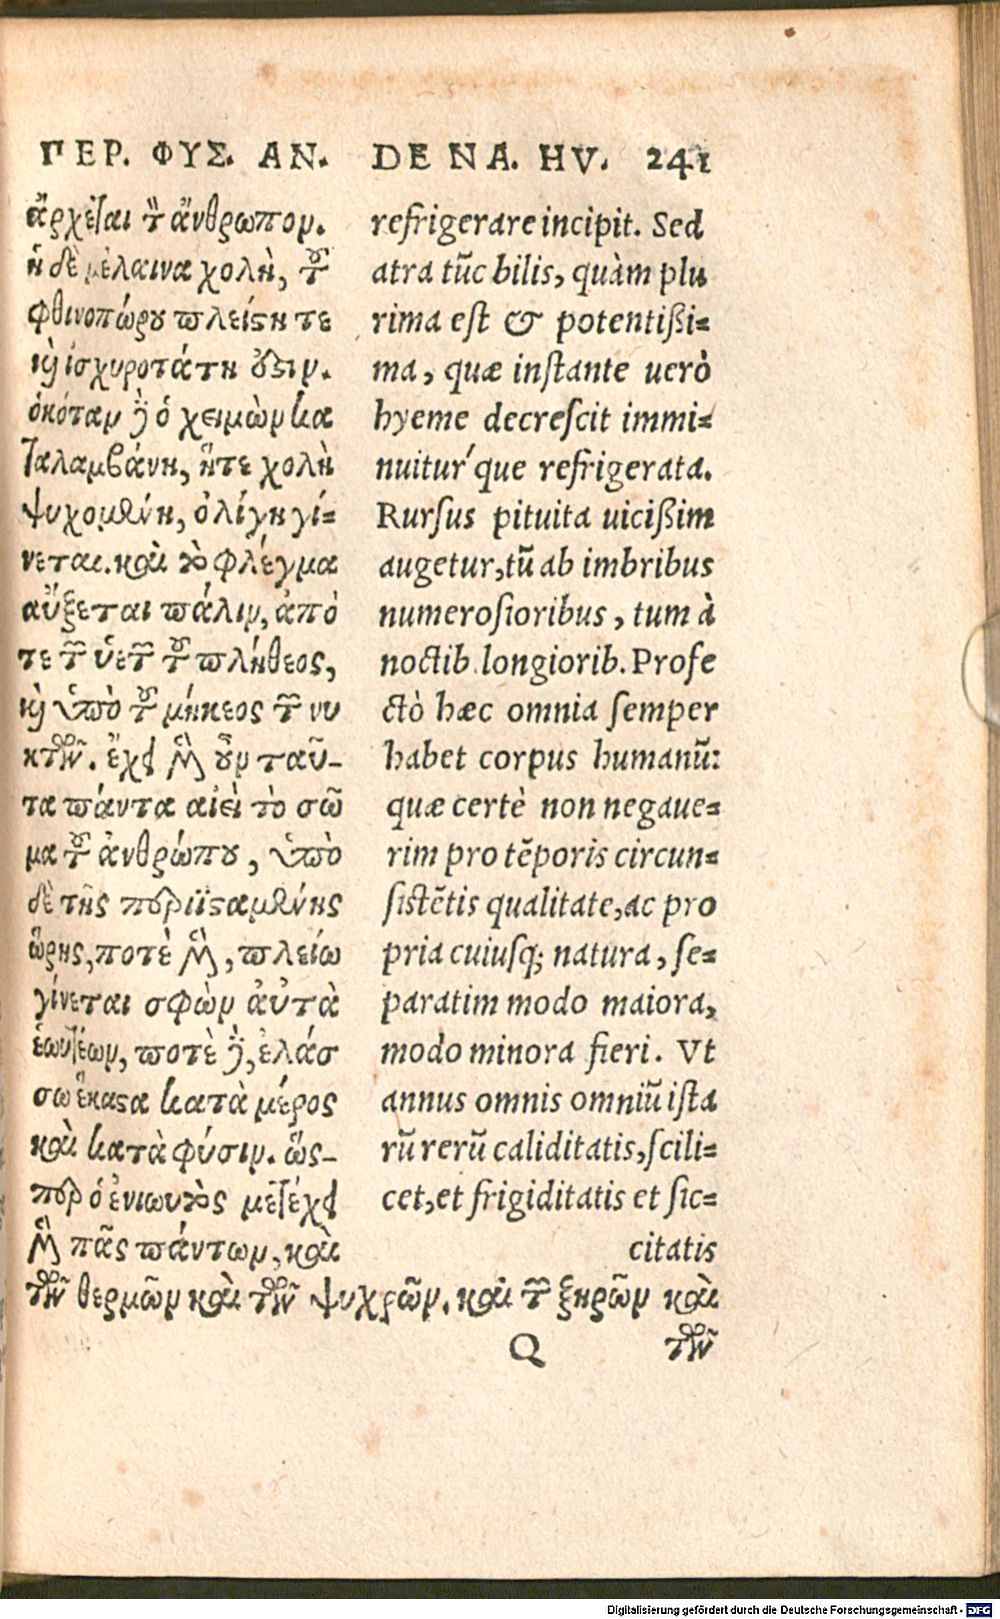 ΠΕΡ. ΦΥΣ. ΑΝ.
ἄρχεται τὸν ἄνθρωπον.
ἡ δὲ μέλαινα χολὴ, τοῦ
φθινοπώρου πλείστη τε
καὶ ἰσχυροτάτη ὅξιν.
ὁκόταν δὲ ὁ χειμὼν κα
ταλαμβάνῃ, ἥτε χολὴ
ψυχομένη, ὀλίγη γί-
νεται. καὶ τὸ φλέγμα
αὔξεται πάλιν, ἀπό
τε τῶν ὑετῶν τοῦ πλήθεος,
καὶ ὑπὸ τοῦ μήκεος τῶν νυ
κτῶν. ἔχει μὲν οὖν ταῦ-
τα πάντα αἰεὶ τὸ σῶ
μα τοῦ ἀνθρώπου, ὑπὸ
δὲ τῆς περιϊσταμένης
ὥρης, ποτὲ μὲν, πλείω
γίνεται σφῶν αὐτὰ
ἑωυτέων, ποτὲ δὲ, ἐλάσ
σω ἕκαστα κατὰ μέρος
καὶ κατὰ φύσιν. ὥς-
περ ὁ ἐνιωυτὸς μετέχει
μὲν πᾶς πάντων, καὶ
τῶν θερμῶν καὶ τῶν ψυχρῶν. καὶ τῶν ξηρῶν καὶ
DE NA. HV. 241
refrigerare incipit. Sed
atra tūc bilis, quàm plu
rima est & potentißi-
ma, quæ instante uerò
hyeme decrescit immi-
nuitur´que refrigerata.
Rursus pituita uicißim
augetur, tū ab imbribus
numerosioribus, tum à
noctib. longiorib. Profe
ctò hæc omnia semper
habet corpus humanū:
quæ certè non negaue-
rim pro tēporis circun-
sistētis qualitate, ac pro
pria cuiusq; natura, se-
paratim modo maiora,
modo minora fieri. Vt
annus omnis omniū ista
rū rerū caliditatis, scili-
cet, et frigiditatis et sic-
citatis
Q τῶν
Digitalisierung gefördert durch die Deutsche Forschungsgemeinschaft - DFG